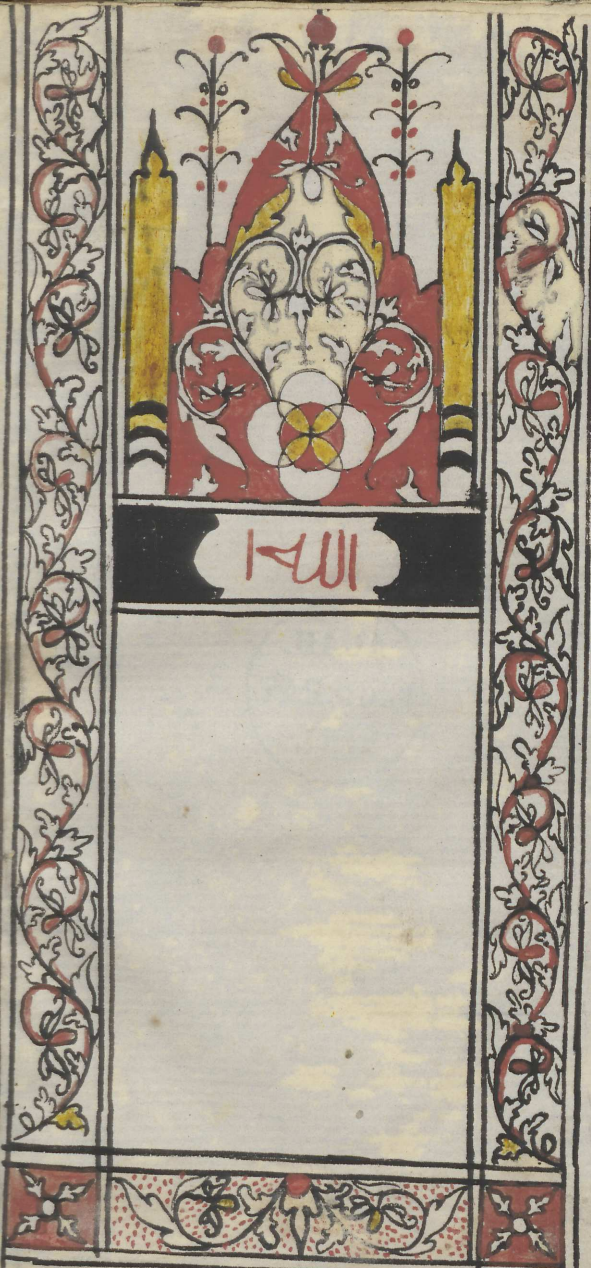 الله ا